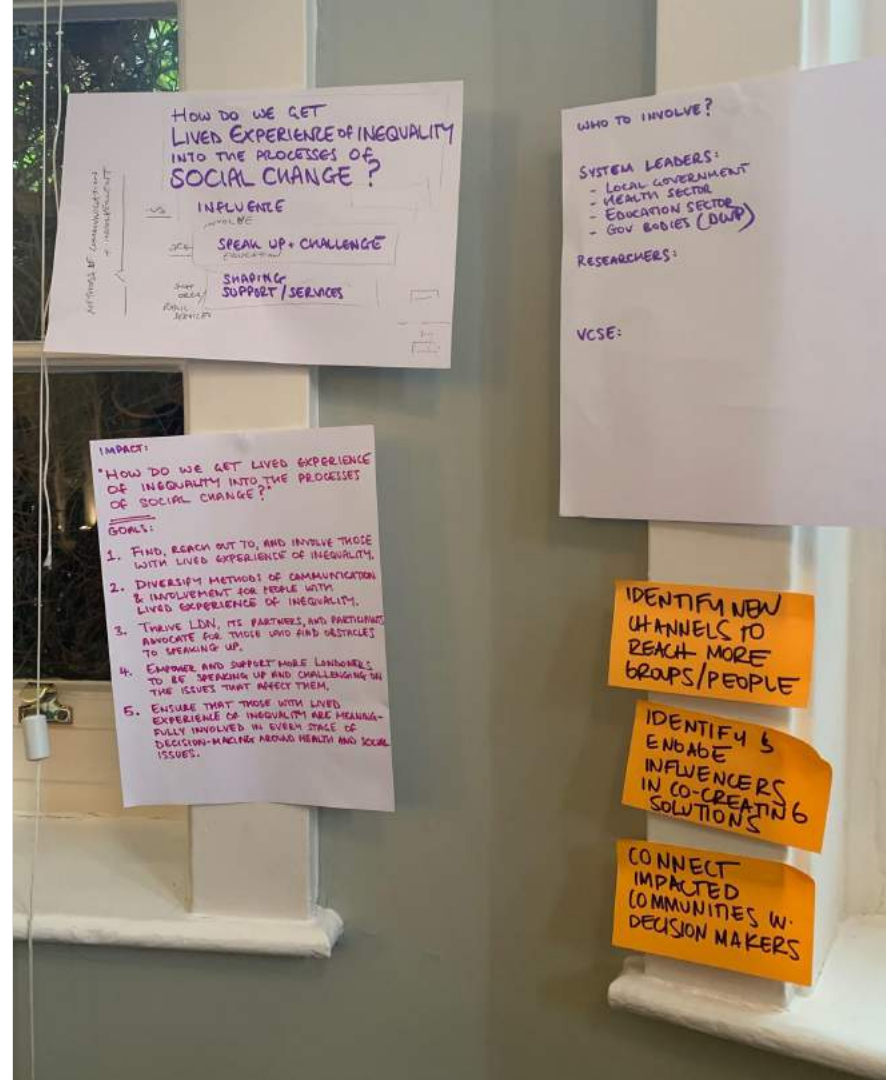 HOW DO WE GET
LIVED EXPERIENCE OF INEQUALITY
INTO THE PROCESSES OF
SOCIAL CHANGE?
METHODS OF COMMUNICATION
+ INVOLVEMENT
INFLUENCE
INVOLVE
SPEAK UP + CHALLENGE
EDUCATION
SHAPING
SUPPORT/SERVICES
PUBLIC
SERVICES
IMPACT:
"HOW DO WE GET LIVED EXPERIENCE
OF INEQUALITY INTO THE PROCESSES
OF SOCIAL CHANGE?"
GOALS:
1. FIND, REACH OUT TO, AND INVOLVE THOSE
WITH LIVED EXPERIENCE OF INEQUALITY.
2. DIVERSIFY METHODS OF COMMUNICATION
& INVOLVEMENT FOR PEOPLE WITH
LIVED EXPERIENCE OF INEQUALITY.
3. THRIVE LDN, ITS PARTNERS, AND PARTICIPANTS
ADVOCATE FOR THOSE WHO FIND OBSTACLES
TO SPEAKING UP.
4. EMPOWER AND SUPPORT MORE LONDONERS
TO BE SPEAKING UP AND CHALLENGING ON
THE ISSUES THAT AFFECT THEM.
5. ENSURE THAT THOSE WITH LIVED
EXPERIENCE OF INEQUALITY ARE MEANING-
FULLY INVOLVED IN EVERY STAGE OF
DECISION-MAKING AROUND HEALTH AND SOCIAL
ISSUES.
WHO TO INVOLVE?
SYSTEM LEADERS:
- LOCAL GOVERNMENT
- HEALTH SECTOR
- EDUCATION SECTOR
- GOV BODIES (DWP)
RESEARCHERS:
VCSE:
IDENTIFY NEW
CHANNELS TO
REACH MORE
GROUPS/PEOPLE
IDENTIFY &
ENGAGE
INFLUENCERS
IN CO-CREATING
SOLUTIONS
CONNECT
IMPACTED
COMMUNITIES W.
DECISION MAKERS